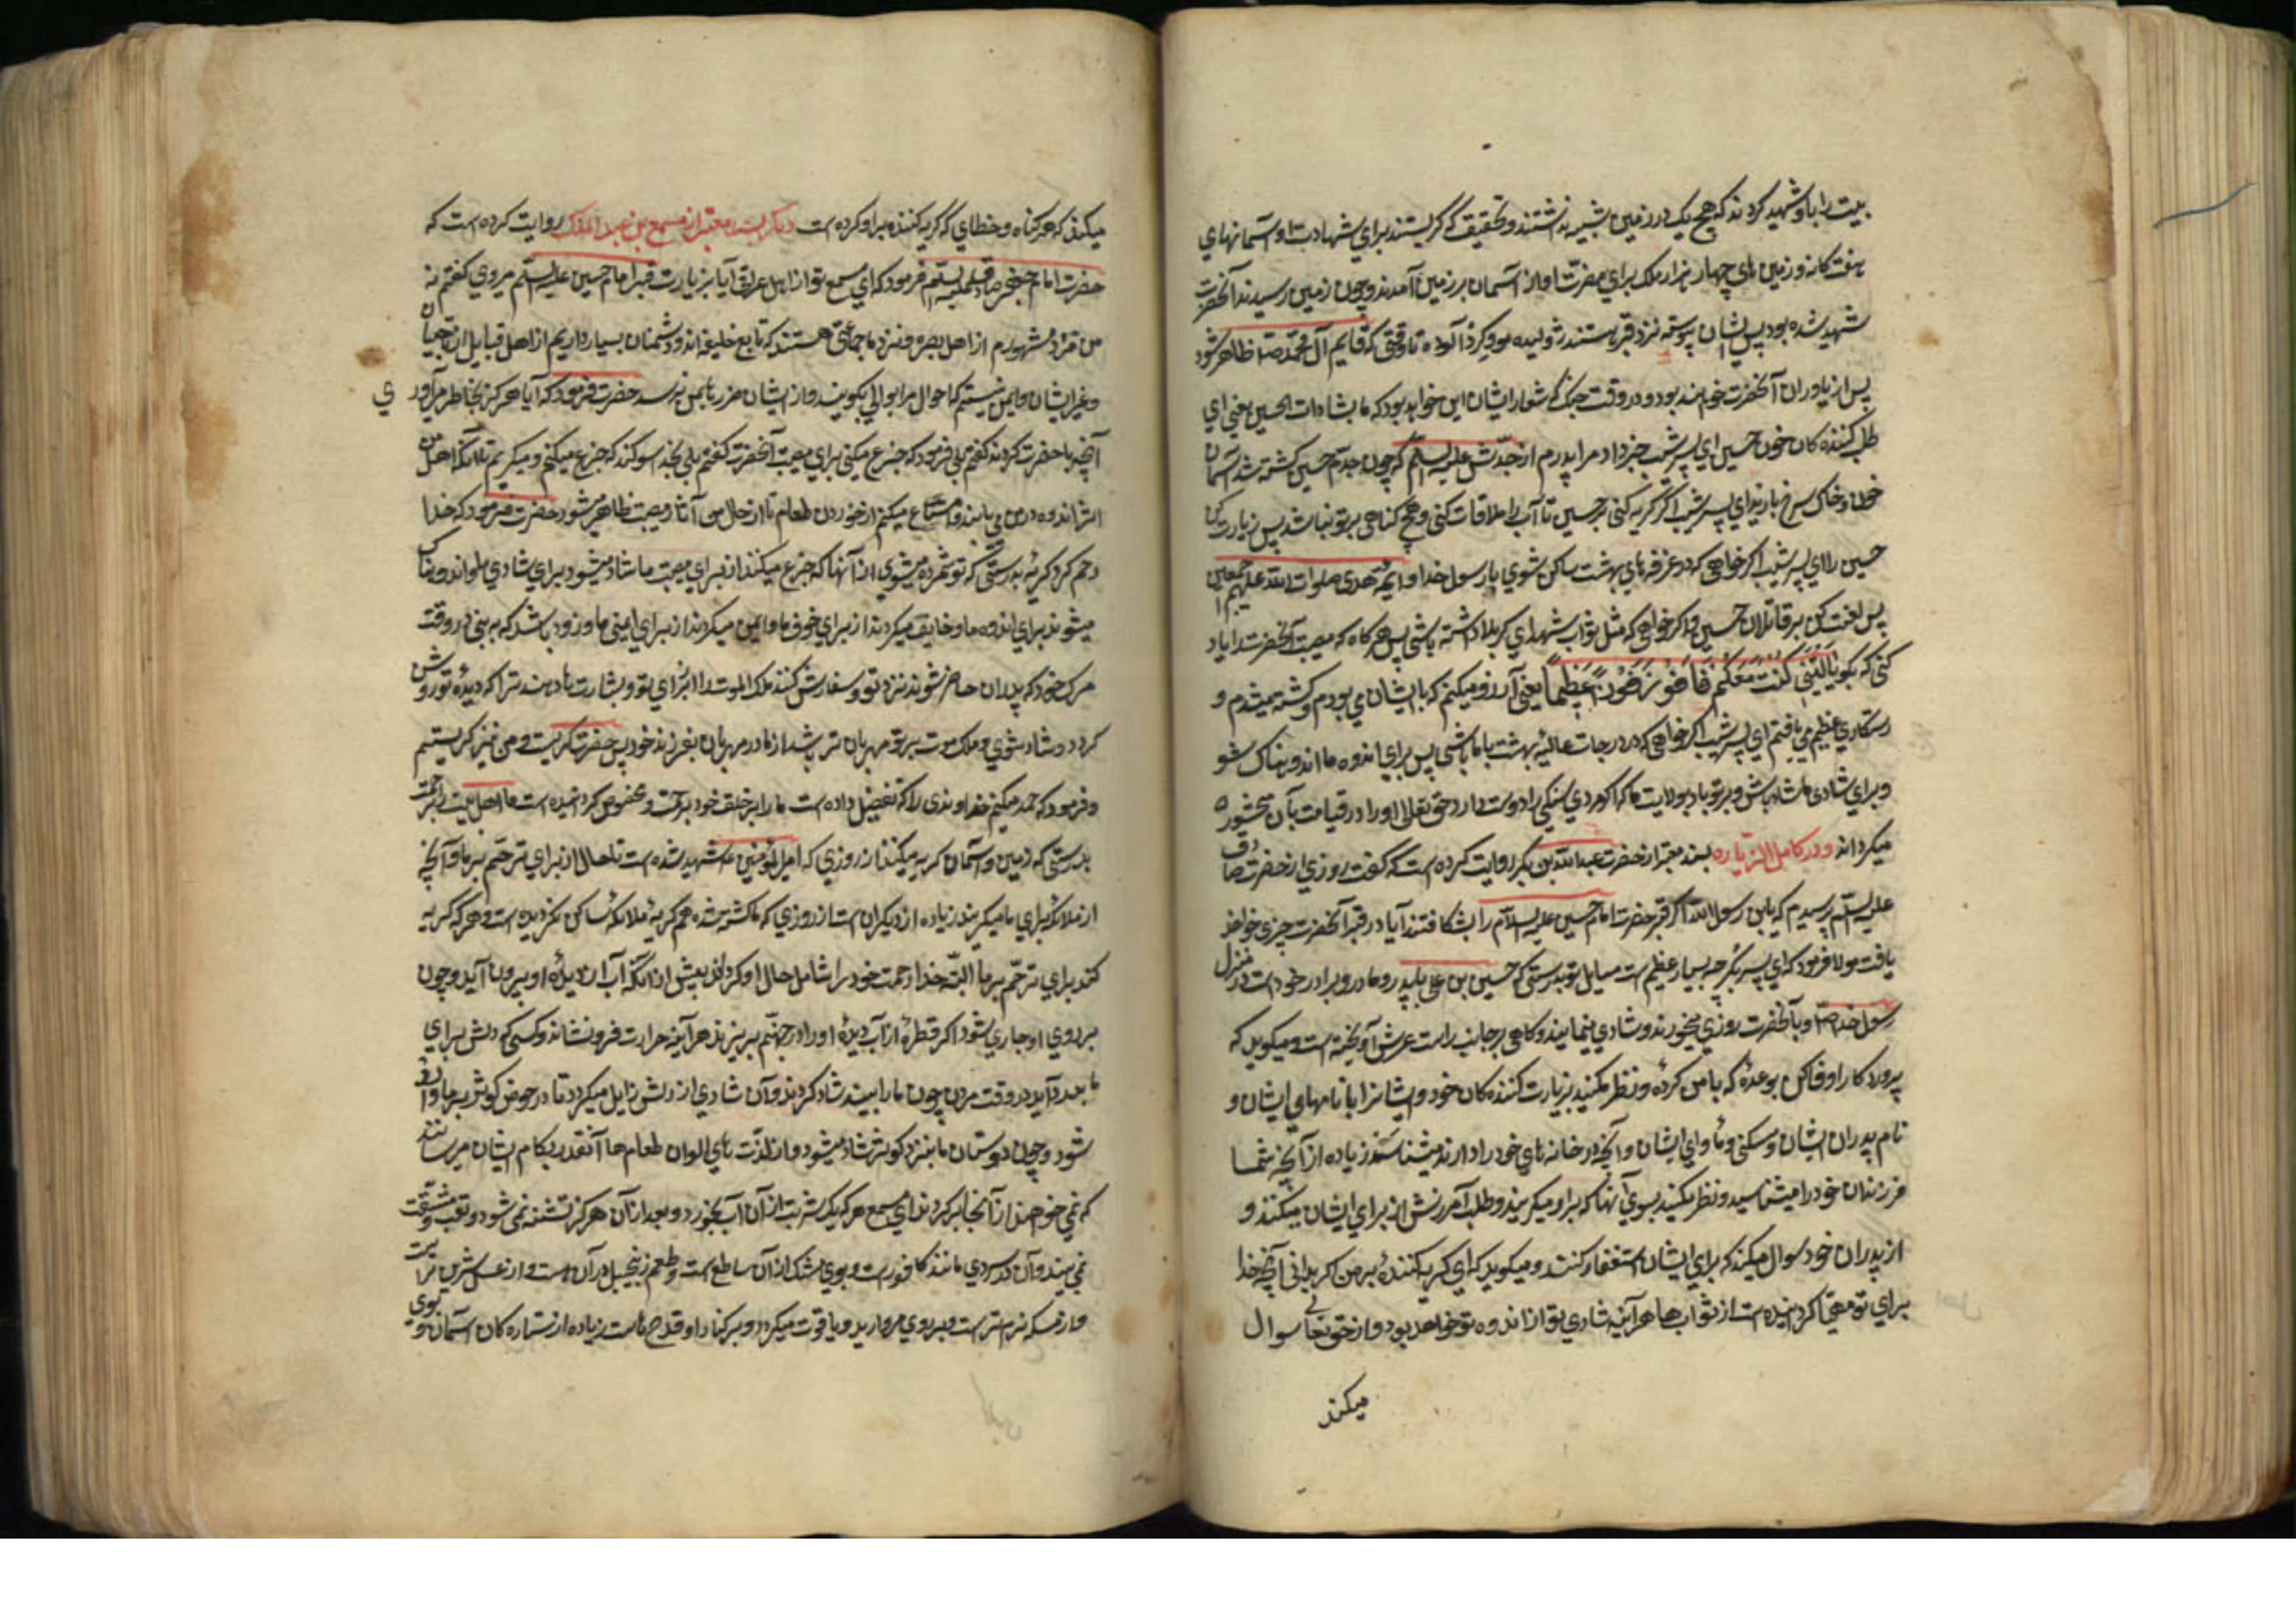 بیت را با او شهید کردند که هیچ یک در زمین شبیه نداشتند و تحقیق که گریستند برای شهادت او آسمانهای
هفت کانه و زمین های چهار هزار ملک برای نصرت او از آسمان بر زمین آمدند و چون زمین رسیدند آنحضرت
شهید شده بود پس ایشان پیوسته نزد قبر هستند ژولیده مو و گرد آلوده تا وقتی که قایم آل محمد ص ظاهر شود
پس از یاوران آنحضرت خواهند بود و در وقت جنک شعار ایشان این خواهد بود که یا لثارات الحسین یعنی ای
طلب کننده کان خون حسین ای پسر شبیب خبر داد مرا پدرم از جدش علیه السلم که چون جدم حسین کشته شد آسمان
خون و خاک سرخ بارید ای پسر شبیب اگر گریه کنی بر حسین تا آنکه خدا را ملاقات کنی و هیچ کناهی بر تو نباشد پس زیارت کن
حسین را ای پسر شبیب اگر خواهی که در غرفه های بهشت ساکن شوی با رسول خدا و ائمه هدی صلوات الله علیهم اجمعین
پس لعنت کن بر قاتلان حسین و اگر خواهی که مثل ثواب شهدای کربلا داشته باشی پس هر کاه که مصیبت آنحضرت را یاد
کنی که بکو یا لیتنی کنت معکم فافوز فوزا عظیما یعنی آرزو میکنم که با ایشان می بودم و کشته میشدم و
رستکاری عظیم می یافتم ای پسر شبیب اگر خواهی که در درجات عالیه بهشت با ما باشی پس برای اندوه ما اندوهناک شو
و برای شادی ما شاد باش و بر تو باد بولایت ما که اگر مردی سنکی را دوست دارد حق تعالی او را در قیامت بآن محشور
میکرداند و در کامل الزیاره بسند معتبر از حضرت عبد الله بن بکر روایت کرده است که گفت روزی از حضرت صادق
علیه السلم پرسیدم که یابن رسول الله اگر قبر حضرت امام حسین علیه السلام را بشکافند آیا در قبر آنحضرت چیزی خواهند
یافت مولا فرمود که ای پسر بکر چه بسیار عظیم است مسایل تو بدرستی که حسین بن علی با پدر و مادر و برادر خود است در منزل
رسول خدا ص و با آنحضرت روزی میخورند و شادی مینمایند و کاهی بر جانب راست عرش آویخته است و میکوید که
پروردکارا وفا کن بوعده که با من کرده و نظر میکنید بزیارت کننده کان خود و ایشانرا با نامهای ایشان و
نام پدران ایشان و مسکن و مأوای ایشان و آنچه در خانه های خود را دارند میشناسند زیاده از آنچه شما
فرزندان خود را میشناسید و نظر میکنید بسوی آنها که بر او میکریند و طلب آمرزش از برای ایشان میکنند و
از پدران خود سوال میکند که برای ایشان استغفار کنند و میکوید که ای کریه کننده بر من اکر بدانی آنچه خدا
برای تو مهیا کردانیده است از ثوابها هر آینه شادی تو از اندوه تو خواهد بود و از حق تعالی سوال
میکند
میکند که هر کناه و خطای که گریه کننده بر او کرده است دیگر بسند معتبر از مسمع بن عبد الملک روایت کرده است که
حضرت امام جعفر صادق علیه السلم فرمود که ای مسمع تو از اهل عراق آیا بزیارت قبر امام حسین علیه السلم میروی گفتم نه
من مرد مشهورم از اهل بصره و نزد ما جماعتی هستند که تابع خلیفه اند و دشمنان بسیار داریم از اهل قبایل از ناصبیان
و غیر ایشان و ایمن نیستم که احوال مرا بوالی بکویند و از ایشان ضررها بمن برسد حضرت فرمود که آیا هرکز بخاطر می آوری
آنچه با حضرت کردند گفتم بلی فرمود که جزع میکنی برای مصیبت آنحضرت گفتم بلی بخدا سوکند که جزع میکنم و میکریم تا آنکه اهل من
اثر اندوه در من می یابند و امتناع میکنم از خوردن طعام تا از حال من آثار مصیبت ظاهر میشود حضرت فرمود که خدا
رحم کرد گریه بدرستی که تو شمرده میشوی از آنها که جزع میکنند از برای مصیبت ما شاد میشود برای شادی ما و اندوهناک
میشوند برای اندوه ما و خایف میکردند از برای خوف ما و ایمن میکردند از برای ایمنی ما و زود باشد که به بینی در وقت
مرک خود که پدران حاضر شوند نزد تو و سفارش کنند ملک الموت را از برای تو و بشارت ها دهند ترا که دیده تو روشن
کردد و شاد شوی و ملک موت بر تو مهربان تر باشد از مادر مهربان بفرزند خود پس حضرت گریست و من نیز گریستیم
و فرمود که حمد میکنم خداوندی را که تفضیل داده است ما را بر خلق خود برحمت و مخصوص کردانیده است ما اهل بیت را برحمت
بدرستی که زمین و آسمان گریه میکنند از روزی که امیر المومنین ع شهید شده است تا حال از برای ترحم بر ما و آنچه
از ملائکه برای ما میکریند زیاده از دیگران است از روزی که ما کشته شده هم گریه ملائکه ساکن نکردیده است و هر که گریه
کند برای ترحم بر ما البته خدا رحمت خود را شامل حال او کرداند پیش از آنکه آب از دیده او بیرون آید و چون
بر روی او جاری شود اکر قطره از آب دیده او را در جهنم بریزند هر آینه حرارت فرونشاند و کسی که دلش برای
ما بدرد آید در وقت مردن چون ما را ببیند شاد کردند و آن شادی از دلش زایل میکردد تا در حوض کوثر بر ما وارد
شود و چون دوستان ما بنزد کوثر شاد میشود و از لذت های الوان طعام ها آنقدر بکام ایشان میرسانند
که نمی خواهند از آنجا برکردند ای مسمع هر که یک شربت از آن آب بخورد و بعد از آن هرکز تشنه نمی شود و تعب و مشقت
نمی بیند و آن در سردی مانند کافور است و بوی مشک از آن ساطع است و طعم زنجبیل در آن هست و از عسل شیرین تر است
و از مسکه نرم تر است و بر روی مروارید و یاقوت میکردد و بر کنار او قدح هاست زیاده از ستاره کان آسمان و بوی